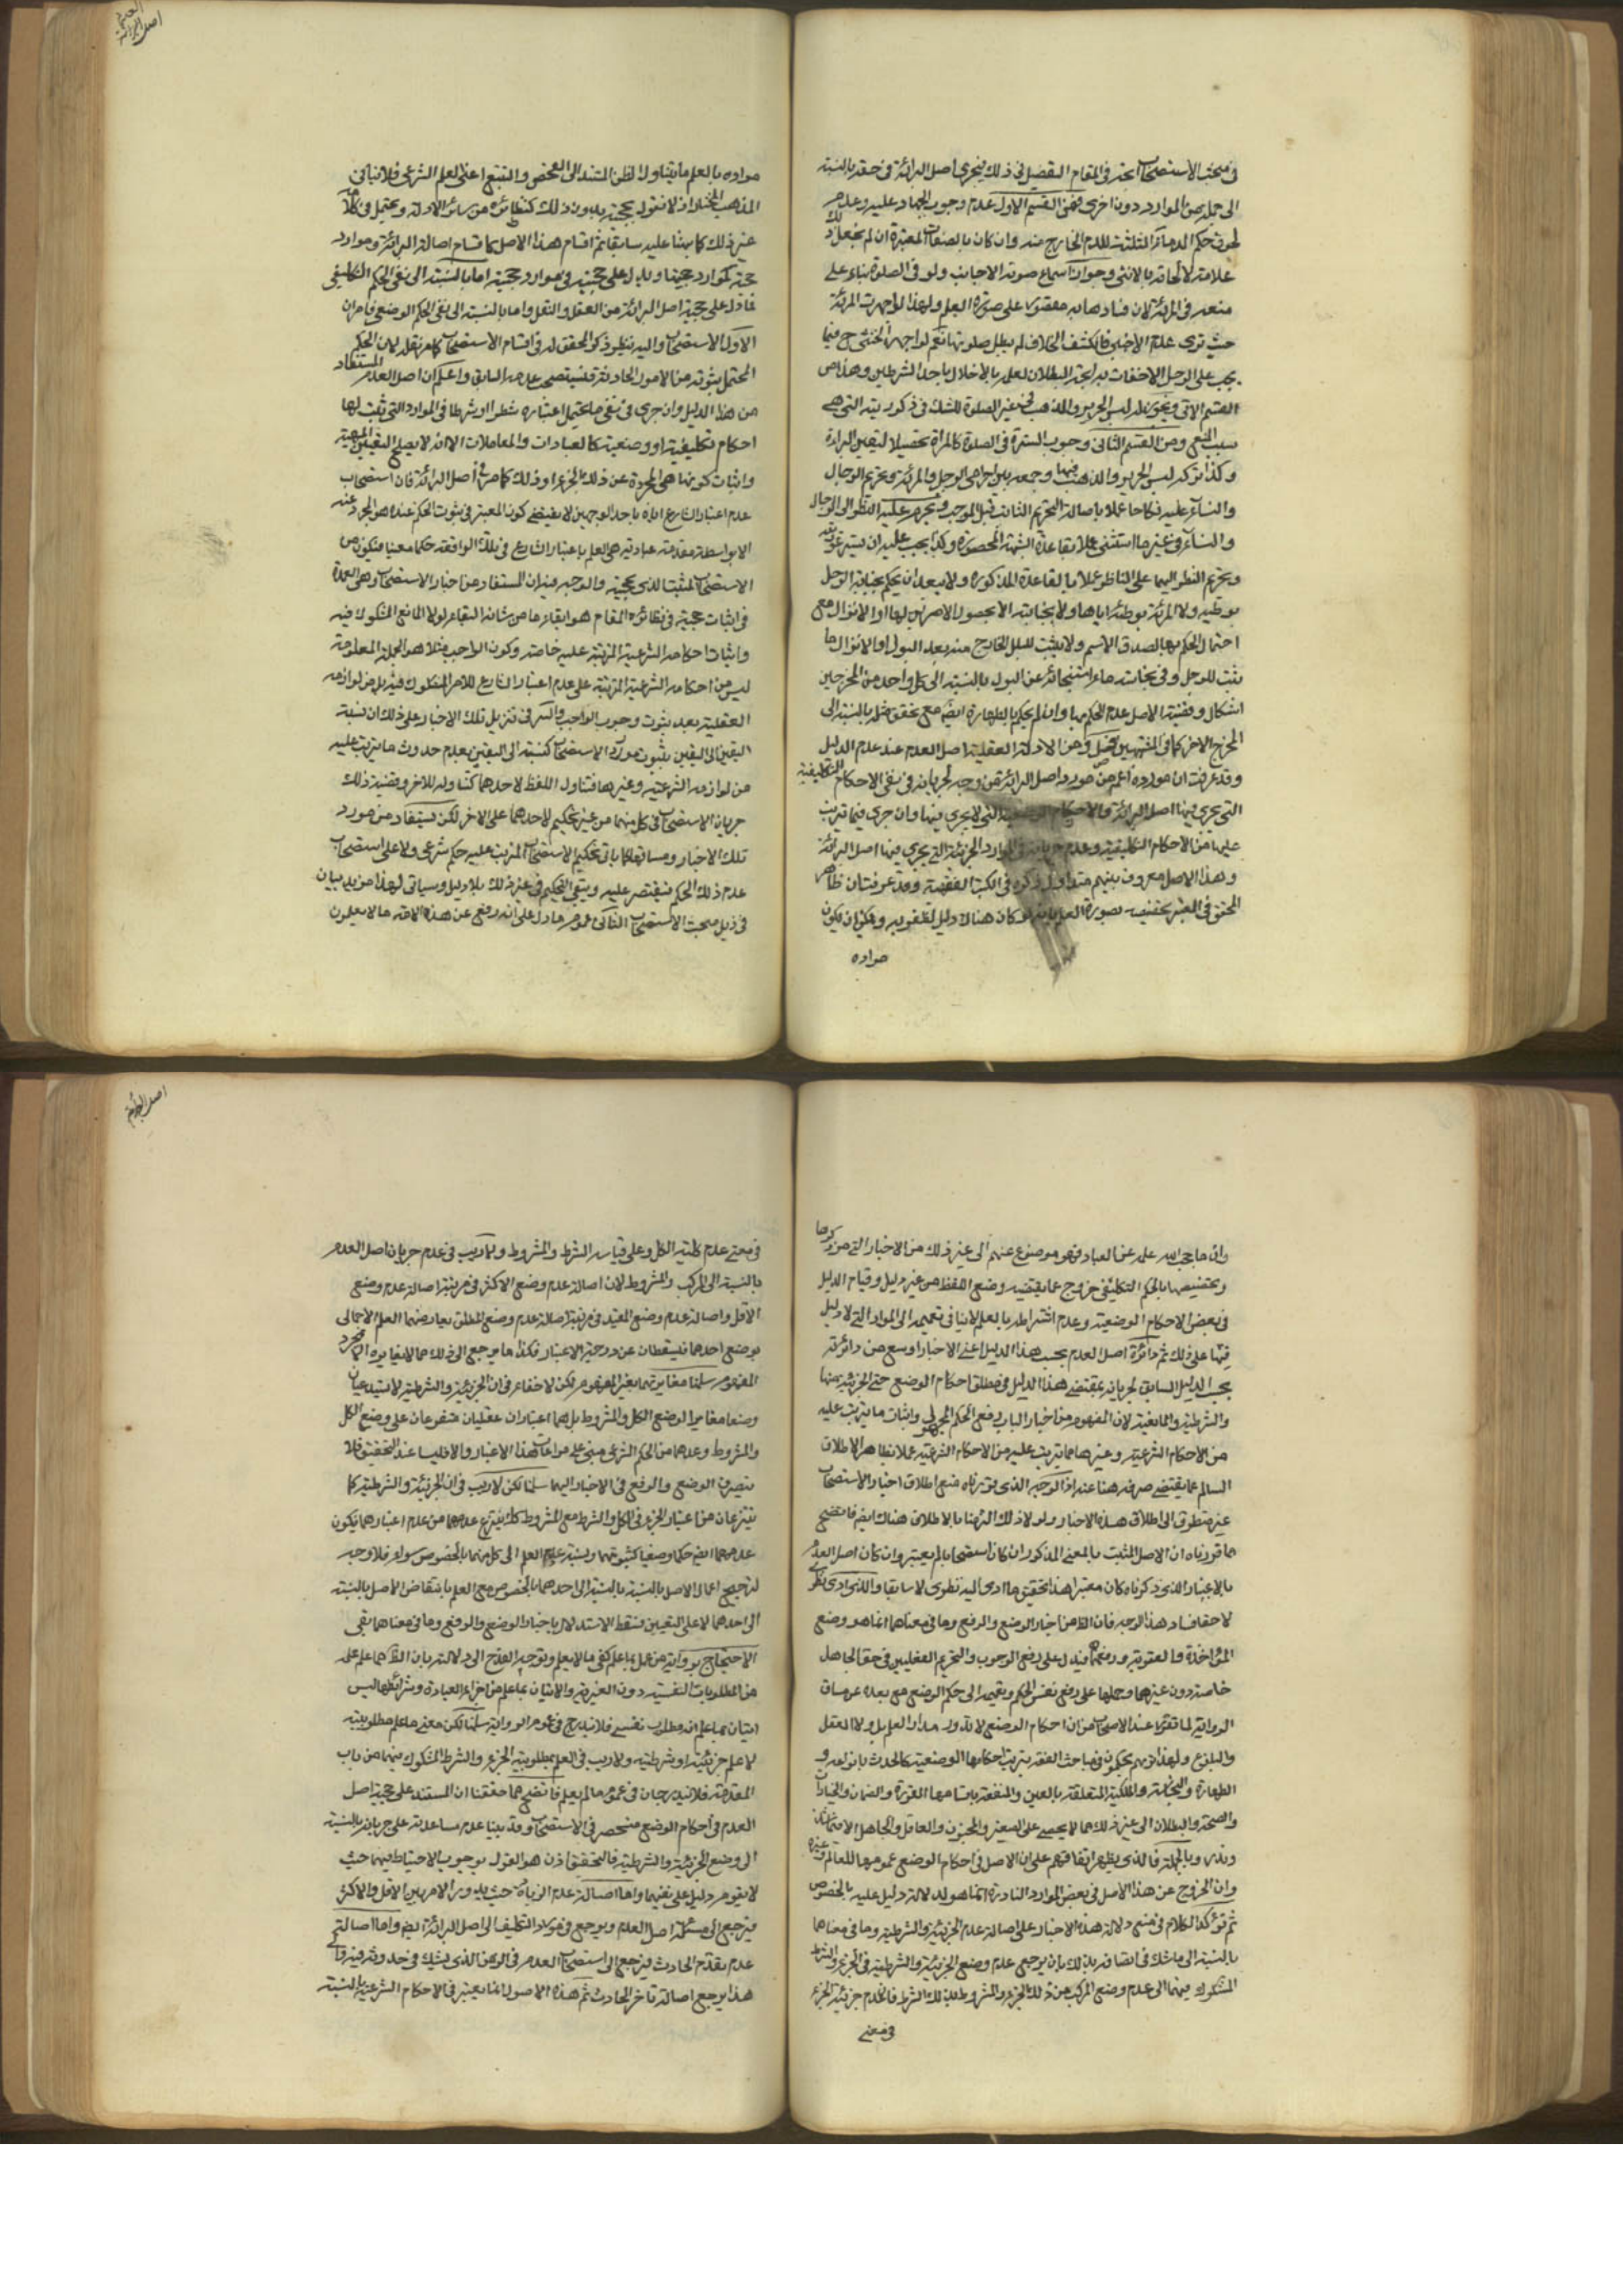 في مبحث الاستصحاب اتجه في المقام التفصيل في ذلك فيجري اصل البرائة في حقه بالنسبة
الى جملة من الموارد دون اخرى فمن القسم الاول عدم وجوب الجهاد عليه وعدم
لحوق حكم الدماء الثلثة للدم الخارج منه وان كان بالصفات المعتبرة ان لم نجعل ذلك
علامة لالحاقه بالانثى وجواز اسماع صوته الاجانب ولو في الصلوة بناء على
منعه في المرئة لان فسادها به مقصور على صورة العلم ولهذا لو اجهرت المرئة
حيث ترى عدم الاجنبي فانكشف الخلاف لم يبطل صلوتها نعم لو اجهر الخنثى ح فيما
يجب على الرجل الاخفات به اتجه البطلان لعلمه بالاخلال باحد الشرطين وهذا من
القسم الاتي ويجوز له لبس الحرير والذهب في غير الصلوة للشك في ذكوريته التي هي
سبب المنع ومن القسم الثاني وجوب السترة في الصلوة كالمراة تحصيلا ليقين البرائة
وكذا تركه لبس الحرير والذهب فيها وجمعه بين احرامي الرجل والمرئة وتحريم الرجال
والنساء عليه نكاحا عملا باصالة التحريم الثابت قبل الموجب وتحرم عليه النظر الى الرجال
والنساء في غير ما استثنى عملا بقاعدة الشبهة المحصورة وكذا يجب عليه ان يستر عورتيه
وتحريم النظر اليهما على الناظر عملا بالقاعدة المذكورة ولا يبعد ان يحكم بجنابة الرجل
بوطيه ولا المرئة بوطئه اياها ولا بجنابته الا بحصول الامرين لها او الانزال مع
احتمال الحكم بها لصدق الاسم ولا يثبت للبلل الخارج منه بعد البول او الانزال ما
يثبت للرجل وفي نجاسة ماء استنجائه عن البول بالنسبة الى كل واحد من المخرجين
اشكال وقضية الاصل عدم الحكم بها وان لم يحكم بالطهارة ايضا مع تحقق مثله بالنسبة الى
المخرج الاخر كما في المشتبهين فصل ومن الادلة العقلية اصل العدم عند عدم الدليل
وقد عرفت ان موارده اعم من مورد اصل البرائة من وجه لجريانه في نفي الاحكام التكليفية
التي يجري فيها اصل البرائة والاحكام الوضعية التي لا يجري فيها وان جرى فيما يترتب
عليها من الاحكام التكليفية وعدم جريانه في الموارد الجزئية التي يجري فيها اصل البرائة
وهذا الاصل معروف بينهم متداول ذكره في الكتب الفقهية وقد عرفت ان ظاهر
المحقق في المعتبر تخصيصه بصورة العلم بانه لو كان هناك دليل لظفر به ويمكن ان يكون
مراده
العدم
اصل البرائة
مراده بالعلم ما يتناول الظن المستند الى الفحص والتتبع اعني العلم الشرعي فلا ينافي
المذهب المختار اذ لا نقول بحجيته بدون ذلك كنظائره من سائر الادلة ويحتمل في كلامه
غير ذلك كما بينا عليه سابقا ثم اقسام هذا الاصل كاقسام اصالة البرائة وموارد
حجيته كموارد حجيتها ويدل على حجيته في موارد حجيته اما بالنسبة الى نفي الحكم التكليفي
فما دل على حجية اصل البرائة من العقل والنقل واما بالنسبة الى نفي الحكم الوضعي فامران
الاول الاستصحاب واليه ينظر ذكر المحقق له في اقسام الاستصحاب كما مر نقله لان الحكم
المحتمل ثبوته من الامور الحادثة فيستصحب عدمه السابق واعلم ان اصل العدم المستفاد
من هذا الدليل وان جرى في نفي ما يحتمل اعتباره شطرا او شرطا في الموارد التي ثبت لها
احكام تكليفية او وضعية كالعبادات والمعاملات الا انه لا يصلح لتعيين المهية
واثبات كونها هي المجردة عن ذلك الجزء او ذلك كما مر في اصل البرائة فان استصحاب
عدم اعتبار الشارع اياه باحد الوجهين لا يقتضي كون المعتبر في ثبوت الحكم عنده هو المجرد عنه
الا بواسطة مقدمة عادية هي العلم باعتبار الشارع في تلك الواقعة حكما معينا فيكون من
الاستصحاب المثبت الذي لا نقول بحجيته والوجه فيه ان المستفاد من اخبار الاستصحاب وهي العمدة
في اثبات حجيته في نظائره المقام هو ابقاء ما من شانه البقاء لولا المانع المشكوك فيه
واثبات احكامه الشرعية المترتبة عليه خاصة وكون الواجب مثلا هو الجملة المعلومة
ليس من احكامه الشرعية المترتبة على عدم اعتبار الشارع للامر المشكوك فيه بل من لوازمه
العقلية بعد ثبوت وجوب الواجب والسر في تنزيل تلك الاخبار على ذلك ان نسبة
اليقين الى اليقين بثبوت مورد الاستصحاب كنسبته الى اليقين بعدم حدوث ما يترتب عليه
من لوازمه الشرعية وغيرها فتناول اللفظ لاحدهما كتناوله للاخر وقضية ذلك
جريان الاستصحاب في كل منهما من غير تحكيم لاحدهما على الاخر لكن يستفاد من مورد
تلك الاخبار ومساقها كما ياتي تحكيم الاستصحاب المترتب عليه حكم شرعي ولا على استصحاب
عدم ذلك الحكم فيقتصر عليه ويبقى التحكيم في غير ذلك بلا دليل وسياتي لهذا مزيد بيان
في ذيل مبحث الاستصحاب الثاني عموم ما دل على انه رفع عن هذه الامة ما لا يعلمون
وان ما حجب الله علمه عن العباد فهو موضوع عنهم الى غير ذلك من الاخبار التي مر ذكرها
وتخصيصها بالحكم التكليفي خروج عما يقتضيه وضع اللفظ من غير دليل وقيام الدليل
في بعض الاحكام الوضعية وعدم اشتراطه بالعلم لا ينافي تعميمه الى الموارد التي لا دليل
فيها على ذلك ثم دائرة اصل العدم بحسب هذا الدليل اعني الاخبار اوسع من دائرته
بحسب الدليل السابق لجريانه بمقتضى هذا الدليل في مطلق احكام الوضع حتى الجزئية منها
والشرطية والمانعية لان المفهوم من اخبار الباب رفع الحكم المجهول واثبات ما يترتب عليه
من الاحكام الشرعية وغيرها مما يترتب عليه من الاحكام الشرعية عملا بظاهر الاطلاق
السالم عما يقتضي صرفه هنا عنه اذ الوجه الذي قررناه في منع اطلاق اخبار الاستصحاب
غير متطرق الى اطلاق هذه الاخبار ولولا ذلك التزمنا بالاطلاق هناك ايضا فاتضح
مما قررناه ان الاصل المثبت بالمعنى المذكور ان كان استصحابا لم يعتبر وان كان اصل العدم
بالاعتبار الذي ذكرناه كان معتبرا هذا تحقيق ما ادى اليه نظري لا سابقا والذي ادى نظري
لاحقا فساد هذا الوجه فان الظ من اخبار الوضع والرفع وما في معناهما انما هو وضع
المؤاخذة والعقوبة ورفعهما فيدل على رفع الوجوب والتحريم الفعليين في حق الجاهل
خاصة دون غيرهما وحملها على رفع نفس الحكم وتعميمه الى حكم الوضع مع بعده عن مساق
الرواية لما تقرر عند الاصحاب من ان احكام الوضع لا تدور مدار العلم بل ولا العقل
والبلوغ ولهذا تريهم يحكمون في مباحث الفقه بترتب احكامها الوضعية كالحدث بانواعه و
الطهارة والنجاسة والملكية المتعلقة بالعين والمنفعة باقسامها المقررة والضمان والخيارات
والصحة والبطلان الى غير ذلك مما لا يحصى على الصغير والمجنون والعاقل والجاهل الا فيما شذ
وندر وبالجملة فالذي يظهر اتفاقهم على ان الاصل في احكام الوضع عمومها للعالم وغيره
وان الخروج عن هذا الاصل في بعض الموارد النادرة انما هو لدلالة دليل عليه بالخصوص
ثم نؤكد الكلام في منع دلالة هذه الاخبار على اصالة عدم الجزئية والشرطية وما في معناهما
بالنسبة الى ما شك في اتصافه بذلك بان يرجع عدم وضع الجزئية والشرطية في الجزء والشرط
المشكوك فيهما الى عدم وضع المركب من ذلك الجزء والمشروط بذلك الشرط فانعدم جزئية الجزء
في معنى
اصل العدم
في معنى عدم كلية الكل وعلى قياسه الشرط والمشروط ولا ريب في عدم جريان اصل العدم
بالنسبة الى المركب والمشروط لان اصالة عدم وضع الاكثر في مرتبة اصالة عدم وضع
الاقل واصالة عدم وضع المقيد في مرتبة اصالة عدم وضع المطلق يعارضهما العلم الاجمالي
بوضع احدهما فيسقطان عن درجة الاعتبار فكذا ما يرجع الى ذلك مما لا يغايره الا بمجرد
المفهوم سلمنا مغايرتهما بغير المفهوم لكن لا خفاء في ان الجزئية والشرطية لا تستدعيان
وضعا مغايرا لوضع الكل والمشروط بل هما اعتباران عقليان متفرعان على وضع الكل
والمشروط وعدهما من الحكم الشرعي مبني على مراعات هذا الاعتبار والا فليسا عند التحقيق فلا
ينصرف الوضع والرفع في الاخبار اليهما سلمنا لكن لا ريب في ان الجزئية والشرطية كما
ينتزعان من اعتبار الجزء في الكل والشرط مع المشروط كذلك ينتزع عدمهما من عدم اعتبارهما فيكون
عدمهما ايضا حكما وضعيا كثبوتهما ونسبة عدم العلم الى كل منهما بالخصوص سواء فلا وجه
لترجيح اعمال الاصل بالنسبة بالنسبة الى احدهما بالخصوص مع العلم بانتقاض الاصل بالنسبة
الى احدهما لا على التعيين فسقط الاستدلال باخبار الوضع والرفع وما في معناهما بقي
الاحتجاج برواية من عمل بما علم كفي ما لا يعلم وتوجيه القدح الى دلالته بان الظ مما علم علم
من المطلوبات النفسية دون الغيرية والاتيان بما علم من اجزاء العبادة وشرائطها ليس
اتيان بما علم انه مطلوب نفسي فلا يندرج في عموم الرواية سلمنا لكن معنى ما علم مطلوبيته
لا علم جزئيته او شرطيته ولا ريب في العلم بمطلوبية الجزء والشرط المشكوك فيهما من باب
المقدمة فلا يندرجان في عموم ما لم يعلم فاتضح مما حققنا ان المستند على حجية اصل
العدم في احكام الوضع منحصر في الاستصحاب وقد بينا عدم مساعدته على جريانه بالنسبة
الى وضع الجزئية والشرطية فالتحقيق اذن هو القول بوجوب الاحتياط فيهما حيث
لا يقوم دليل على نفيهما واما اصالة عدم الزيادة حيث يدور الامر بين الاقل والاكثر
فيرجع الى مسئلة اصل العدم ويرجع في موارد التكليف الى اصل البرائة ايضا واما اصالة
عدم تقدم الحادث فيرجع الى استصحاب العدم في الزمن الذي يشك في حدوثه فيه والى
هذا يرجع اصالة تاخر الحادث ثم هذه الاصول انما يعتبر في الاحكام الشرعية بالنسبة